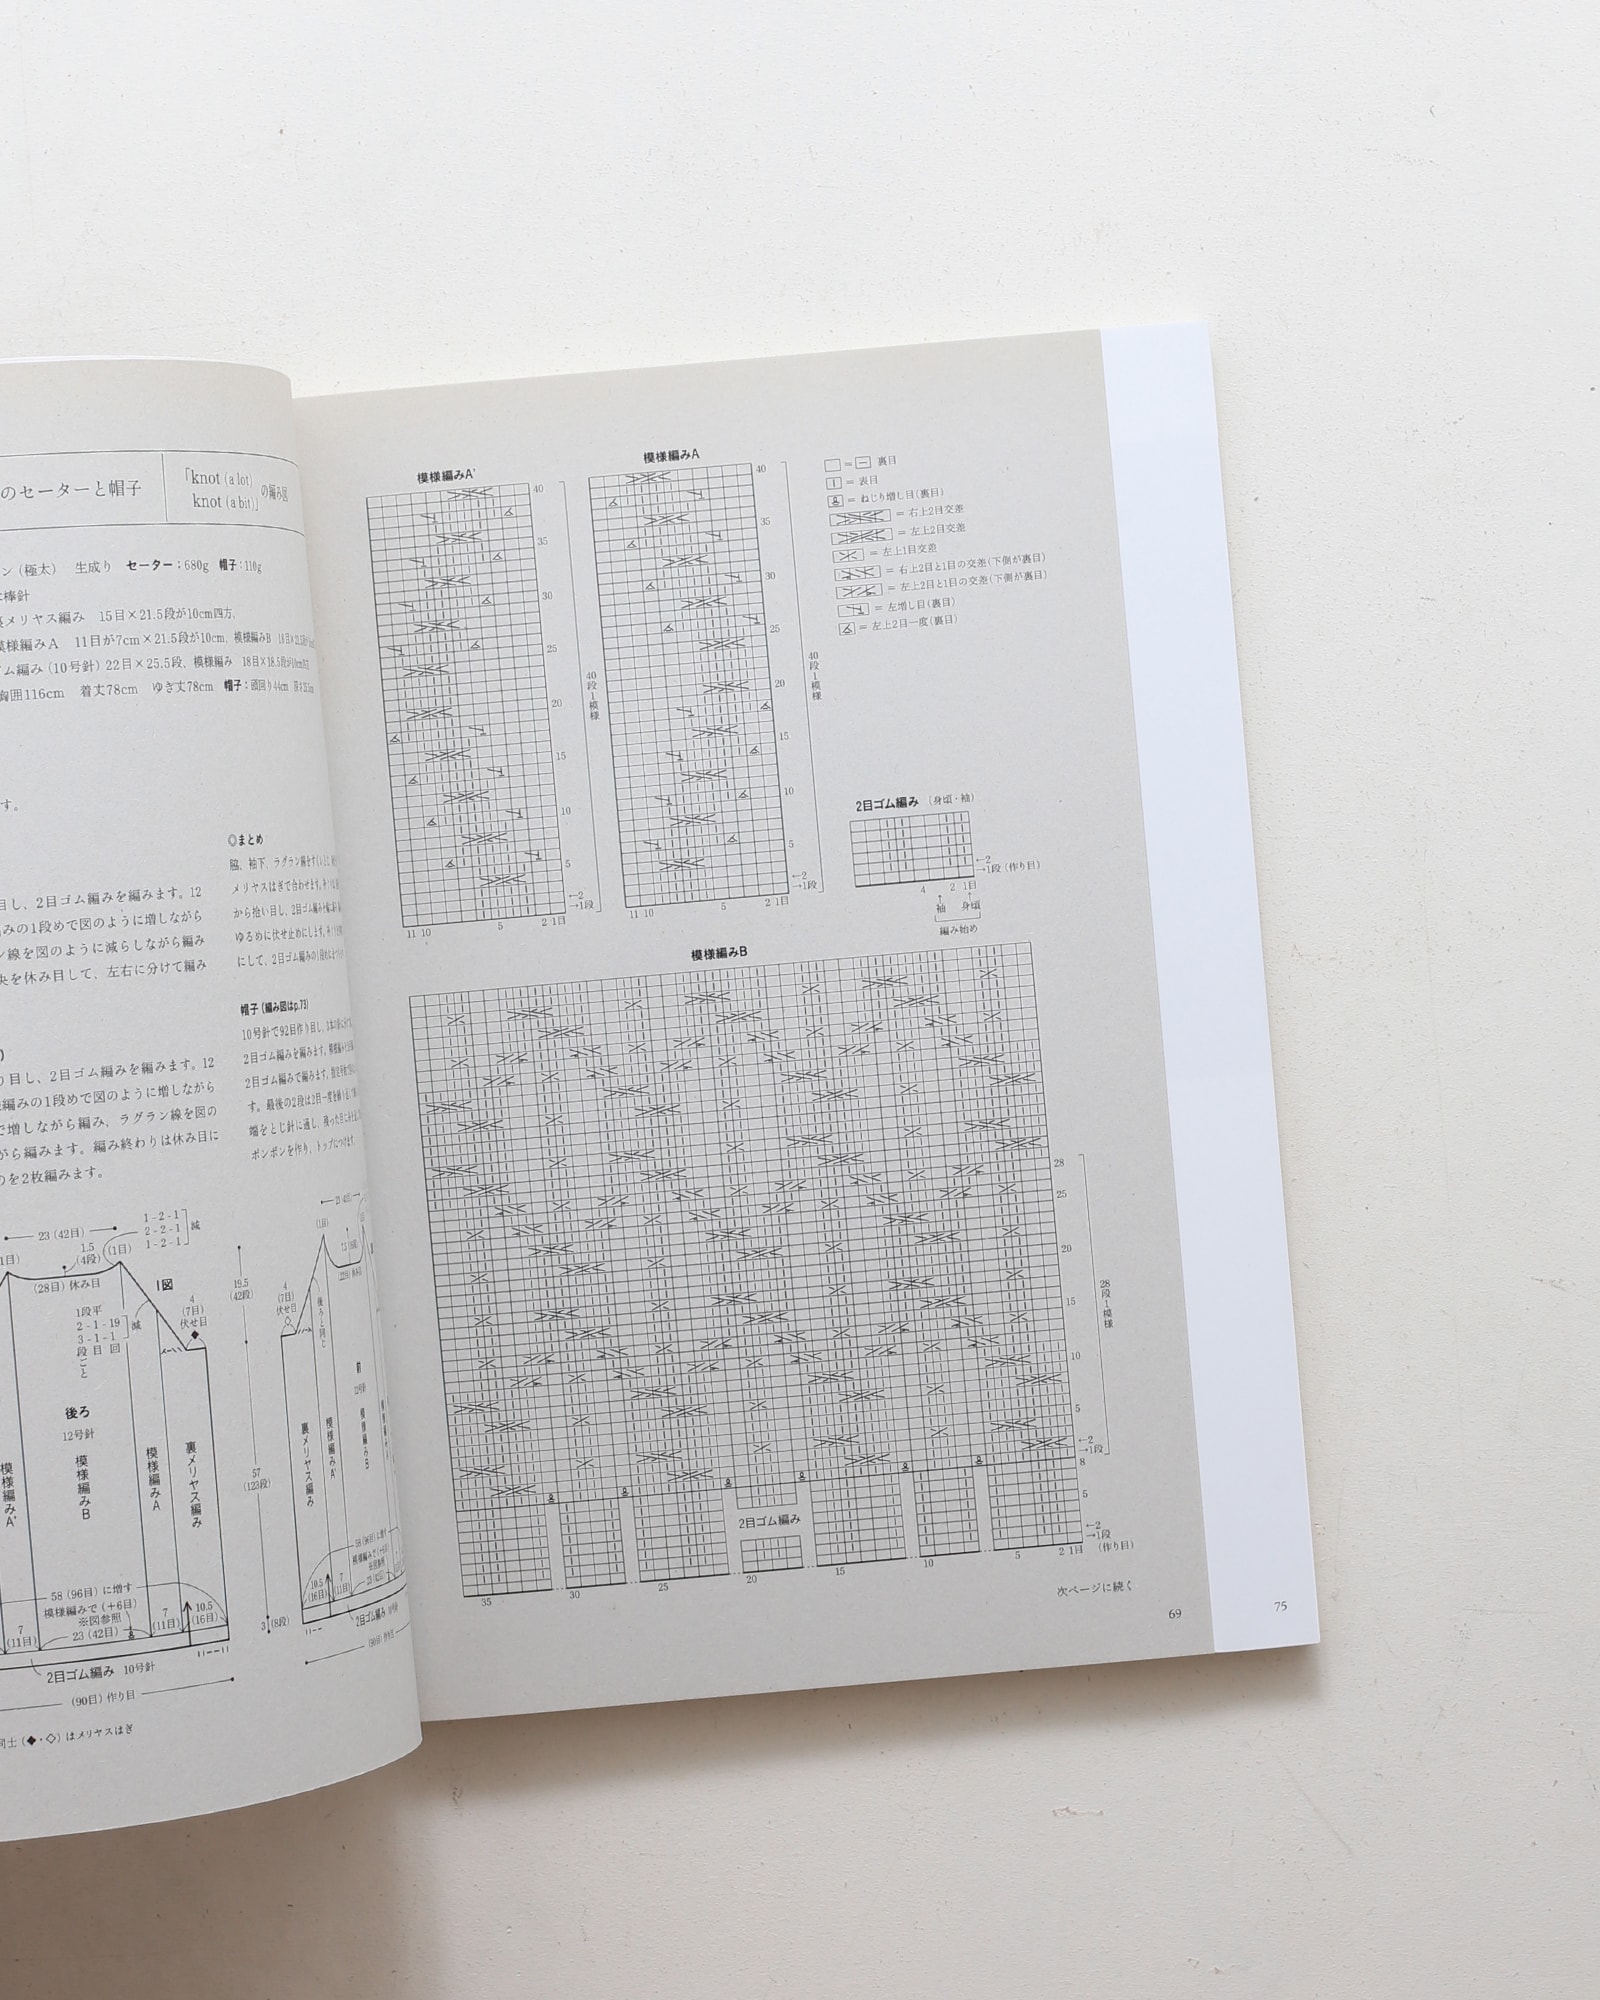 のセーターと帽子
「knot (a lot)
knot (a bit)」の編み図
ン(極太) 生成り セーター:680g 帽子:110g
棒針
裏メリヤス編み 15目×21.5段が10cm四方、
模様編みA 11目が7cm×21.5段が10cm、模様編みB
ム編み(10号針)22目×25.5段、模様編み 18目×18.5段が10cm四方
胸囲116cm 着丈78cm ゆき丈78cm 帽子:頭回り44cm
す。
目し、2目ゴム編みを編みます。12
編みの1段めで図のように増しながら
ン線を図のように減らしながら編み
央を休み目して、左右に分けて編み
り目し、2目ゴム編みを編みます。12
編みの1段めで図のように増しながら
で増しながら編み、ラグラン線を図の
がら編みます。編み終わりは休み目に
のを2枚編みます。
◎まとめ
脇、袖下、ラグラン線をすくい
メリヤスはぎで合わせます。
から拾い目し、2目ゴム編みを
ゆるめに伏せ止めにします。
にして、2目ゴム編みの1段め
帽子(編み図はp.73)
10号針で92目作り目し、
2目ゴム編みを編みます。
2目ゴム編みで編みます。
す。最後の2段は2目一度を
端をとじ針に通し、残った目に
ポンポンを作り、トップにつけます。
23(42目)
1-2-1
2-2-1
1-2-1
減
1.5
(4段)
(1目)
(28目)休み目
1図
4
(7目)
伏せ目
1段平
2-1-19
3-1-1
段目回
ごと
減
19.5
(42段)
後ろ
12号針
模様編みA'
模様編みB
模様編みA
裏メリヤス編み
57
(123段)
58(96目)に増す
模様編みで(+6目)
※図参照
7
(11目)
23(42目)
7
(11目)
10.5
(16目)
3(8段)
2目ゴム編み 10号針
(90目)作り目
同士(◆・◇)はメリヤスはぎ
(1目)
4
(7目)
伏せ目
後ろと同じ
前
12号針
裏メリヤス編み
模様編みA'
模様編みB
58(96目)に増す
模様編みで(+6目)
※図参照
10.5
(16目)
7
(11目)
23(42目)
2目ゴム編み
(90目)作り目
模様編みA'
40
35
30
25
20
15
10
5
←2
→1段
11 10 5 2 1目
40段1模様
模様編みA
40
35
30
25
20
15
10
5
←2
→1段
11 10 5 2 1目
40段1模様
= 裏目
= 表目
= ねじり増し目(裏目)
= 右上2目交差
= 左上2目交差
= 左上1目交差
= 右上2目と1目の交差(下側が裏目)
= 左上2目と1目の交差(下側が裏目)
= 左増し目(裏目)
= 左上2目一度(裏目)
2目ゴム編み (身頃・袖)
←2
→1段(作り目)
4 2 1目
袖 身頃
編み始め
模様編みB
28
25
20
15
10
5
←2
→1段
28段1模様
8
5
←2
→1段
(作り目)
2目ゴム編み
35 30 25 20 15 10 5 2 1目
次ページに続く
69
75